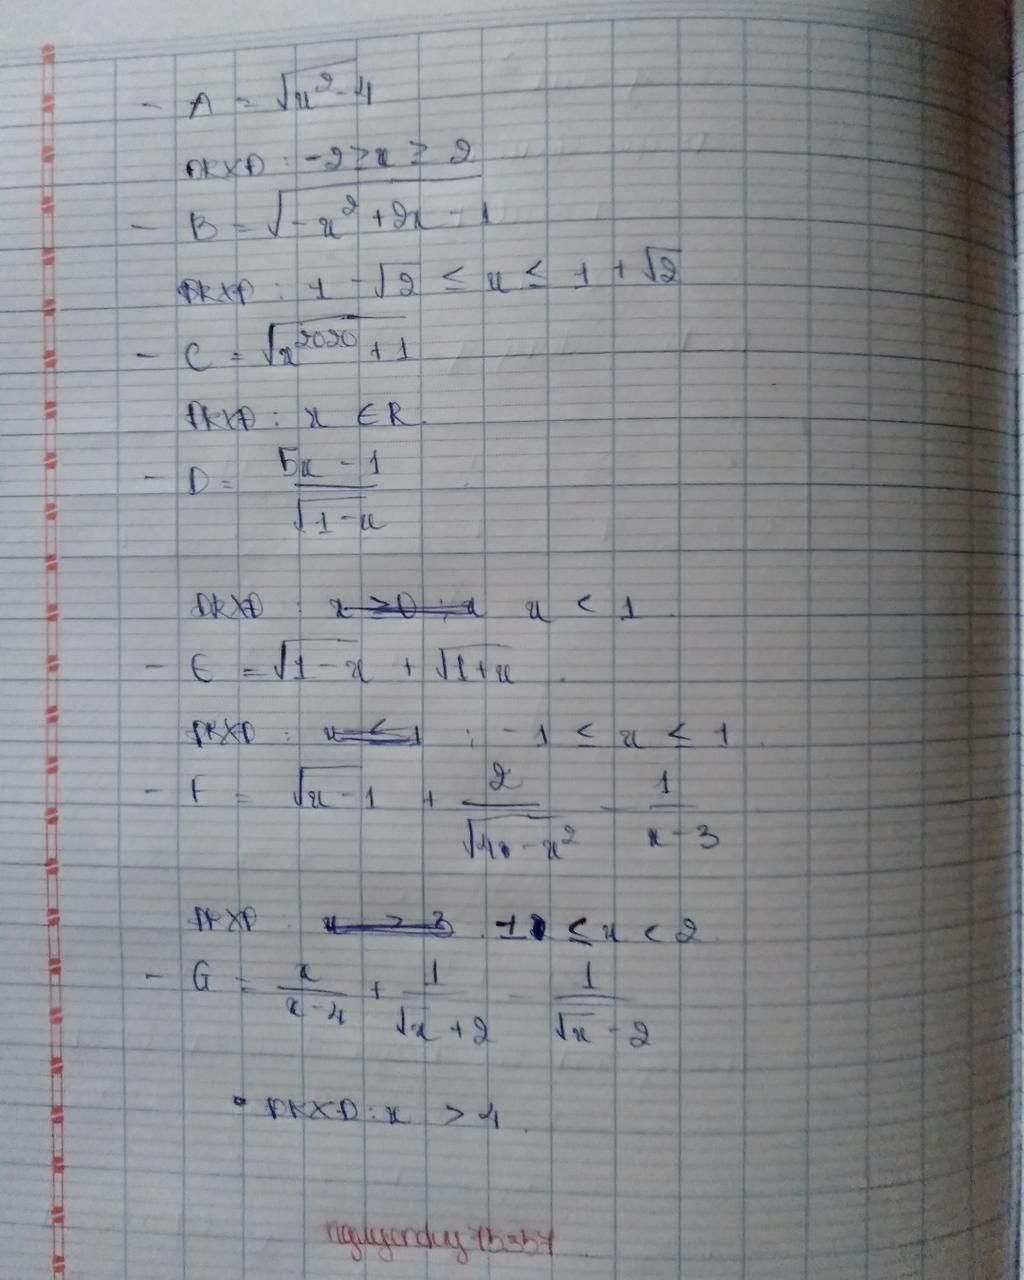 - A = √(x² - 4)
ĐKXĐ : -2 ≥ x ≥ 2
- B = √(-x² + 2x - 1)
ĐKXĐ : 1 - √2 ≤ x ≤ 1 + √2
- C = √(x²⁰²⁰ + 1)
ĐKXĐ : x ∈ R.
- D = (5x - 1)/√(1-x)
ĐKXĐ : x < 1.
- E = √(1-x) + √(1+x).
ĐKXĐ : -1 ≤ x ≤ 1.
- F = √(x-1) + 2/√(4x - x²) - 1/(x-3)
ĐKXĐ : 1 ≤ x < 2
- G = x/(x-4) + 1/(√x + 2) - 1/(√x - 2)
• ĐKXĐ : x > 4.
nguyenduy75357